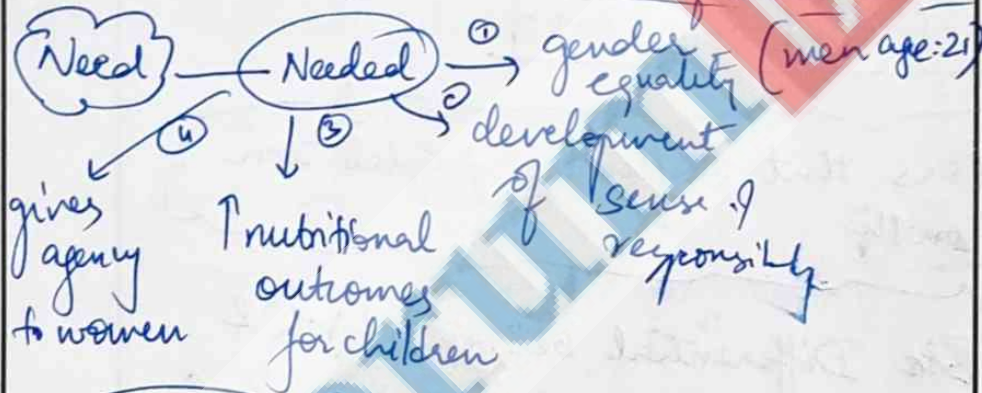 Need
Needed
① gender equality (men age:21)
② development of sense of responsibly
③ ↑ nutritional outcomes for children
④ gives agency to women